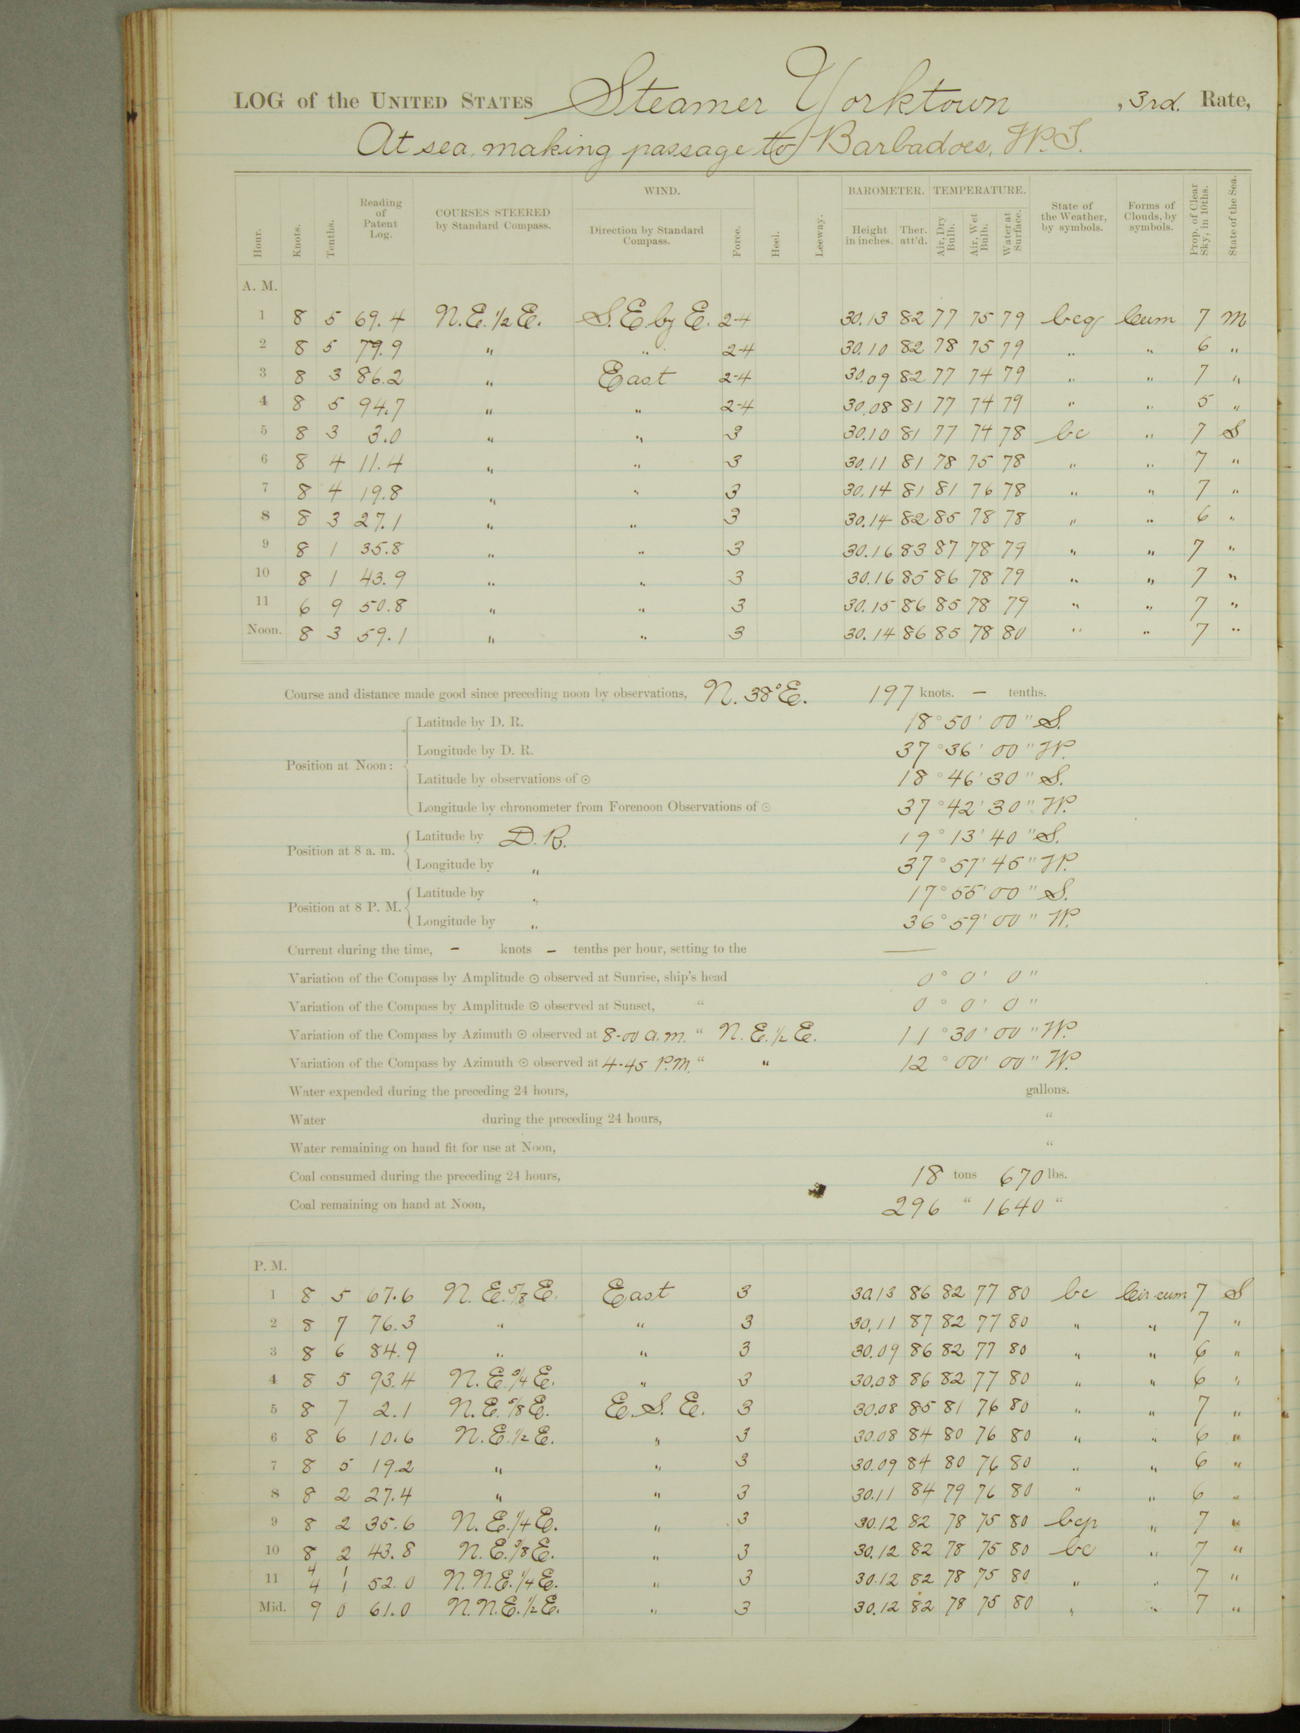 LOG of the UNITED STATES Steamer Yorktown, 3rd. Rate,
At sea, making passage to Barbadoes, W.I.
Hour. Knots. Tenths. Reading of Patent Log. COURSES STEERED by Standard Compass. WIND. Direction by Standard Compass. Force. Heel. Leeway. BAROMETER. Height in inches. Ther. att'd. TEMPERATURE. Air, Dry Bulb. Air, Wet Bulb. Water at Surface. State of the Weather, by symbols. Forms of Clouds, by symbols. Prop. of Clear Sky, in 10ths. State of the Sea.
A. M.
1 8 5 69.4 N.E.1/2E. S.E by E. 2-4 30.13 82 77 75 79 bcq Cum 7 M
2 8 5 79.9 " " 2-4 30.10 82 78 75 79 " " 6 "
3 8 3 86.2 " East 2-4 30.09 82 77 74 79 " " 7 "
4 8 5 94.7 " " 2-4 30.08 81 77 74 79 " " 5 "
5 8 3 3.0 " " 3 30.10 81 77 74 78 bc " 7 S
6 8 4 11.4 " " 3 30.11 81 78 75 78 " " 7 "
7 8 4 19.8 " " 3 30.14 81 81 76 78 " " 7 "
8 8 3 27.1 " " 3 30.14 82 85 78 78 " " 6 "
9 8 1 35.8 " " 3 30.16 83 87 78 79 " " 7 "
10 8 1 43.9 " " 3 30.16 85 86 78 79 " " 7 "
11 6 9 50.8 " " 3 30.15 86 85 78 79 " " 7 "
Noon. 8 3 59.1 " " 3 30.14 86 85 78 80 " " 7 "
Course and distance made good since preceding noon by observations, N. 38° E. 197 knots. — tenths.
Position at Noon: Latitude by D. R. 18° 50' 00" S.
Longitude by D. R. 37° 36' 00" W.
Latitude by observations of ☉ 18° 46' 30" S.
Longitude by chronometer from Forenoon Observations of ☉ 37° 42' 30" W.
Position at 8 a. m. Latitude by D. R. 19° 13' 40" S.
Longitude by " 37° 57' 45" W.
Position at 8 P. M. Latitude by " 17° 55' 00" S.
Longitude by " 36° 59' 00" W.
Current during the time, — knots — tenths per hour, setting to the —
Variation of the Compass by Amplitude ☉ observed at Sunrise, ship's head 0° 0' 0"
Variation of the Compass by Amplitude ☉ observed at Sunset, " 0° 0' 0"
Variation of the Compass by Azimuth ☉ observed at 8-00 a.m. " N.E.1/2E. 11° 30' 00" W.
Variation of the Compass by Azimuth ☉ observed at 4-45 P.M. " " 12° 00' 00" W.
Water expended during the preceding 24 hours, gallons.
Water during the preceding 24 hours, "
Water remaining on hand fit for use at Noon, "
Coal consumed during the preceding 24 hours, 18 tons 670 lbs.
Coal remaining on hand at Noon, 296 " 1640 "
P. M.
1 8 5 67.6 N.E.5/8E. East 3 30.13 86 82 77 80 bc Cir-cum 7 S
2 8 7 76.3 " " 3 30.11 87 82 77 80 " " 7 "
3 8 6 84.9 " " 3 30.09 86 82 77 80 " " 6 "
4 8 5 93.4 N.E.3/4E. " 3 30.08 86 82 77 80 " " 6 "
5 8 7 2.1 N.E.5/8E. E.S.E. 3 30.08 85 81 76 80 " " 7 "
6 8 6 10.6 N.E.1/2E. " 3 30.08 84 80 76 80 " " 6 "
7 8 5 19.2 " " 3 30.09 84 80 76 80 " " 6 "
8 8 2 27.4 " " 3 30.11 84 79 76 80 " " 6 "
9 8 2 35.6 N.E.1/4E. " 3 30.12 82 78 75 80 bcp " 7 "
10 8 2 43.8 N.E.3/8E. " 3 30.12 82 78 75 80 bc " 7 "
11 4 4 1 1 52.0 N.N.E.1/4E. " 3 30.12 82 78 75 80 " " 7 "
Mid. 9 0 61.0 N.N.E.1/2E. " 3 30.12 82 78 75 80 " " 7 "